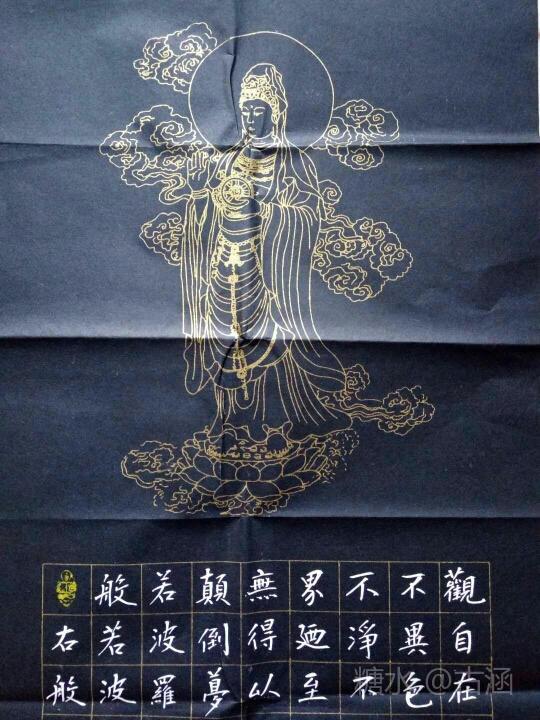 觀自在
不異色
不淨不
界廼至
無得以
顛倒夢
若波羅
般若波
右般
糖水 @古涵